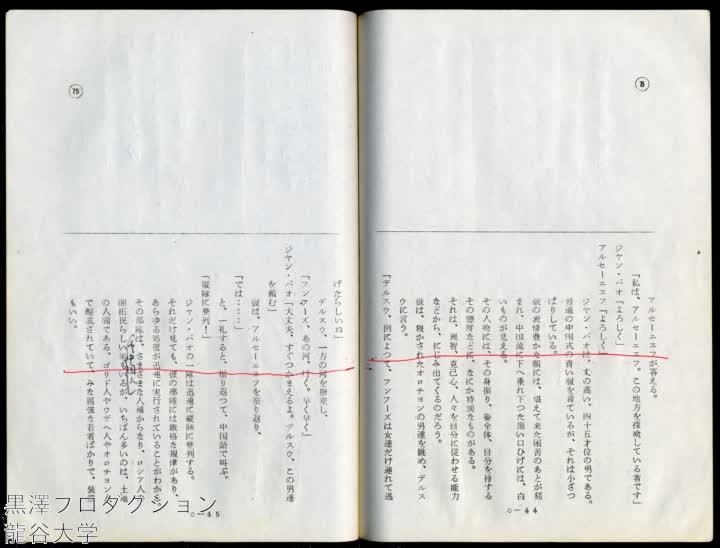 76
アルセーニエフが答える。
「私は、アルセーニエフ。この地方を探検している者です」
ジヤン・バオ「よろしく」
アルセーニエフ「よろしく」
ジヤン・バオは、丈の高い、四十五才位の男である。
普通の中国式の青い服を着ているが、それは小ざつ
ぱりしている。
彼の表情豊かな顔には、堪えて来た困苦のあとが刻
まれ、中国流に下へ垂れ下つた黒い口ひげには、白
いものが見える。
その人物には、その身振り、姿全体、自分を持する
その態度などに、なにか特別なものがある。
それは、理智、克己心、人々を自分に従わせる能力
などから、にじみ出てくるのだろう。
彼は、寝かされたオロチヨンの男達を眺め、デルス
ウに言う。
「デルスウ、例によつて、フンフーズは女達だけ連れて逃
C−44
75
げたらしいね」
デルスウ、一方の河を指差し、
「フンフーズ、あの河、行く。早く早く」
ジヤン・バオ「大丈夫、すぐつかまえるよ。デルスウ、この男達
を頼む」
彼は、アルセーニエフを振り返り、
「では‥‥」
と、一礼すると、振り返つて、中国語で叫ぶ。
「縦隊に整列！」
ジヤン・バオの一隊は迅速に縦隊に整列する。
それだけ見ても、彼の部隊には厳格な規律があり、
あらゆる処置が迅速に実行されていることがわかる。
その部隊は、さまざまな人種からなり、ロシア人の
開拓民らしい
いるが、いちばん多いのは、土着
中国人
の人間である、ゴリド人やウデヘ人やオロチヨン
で編成されていて、みな屈強な若者ばかりで、装備
もいい。
C−45
黒澤プロダクション
龍谷大学